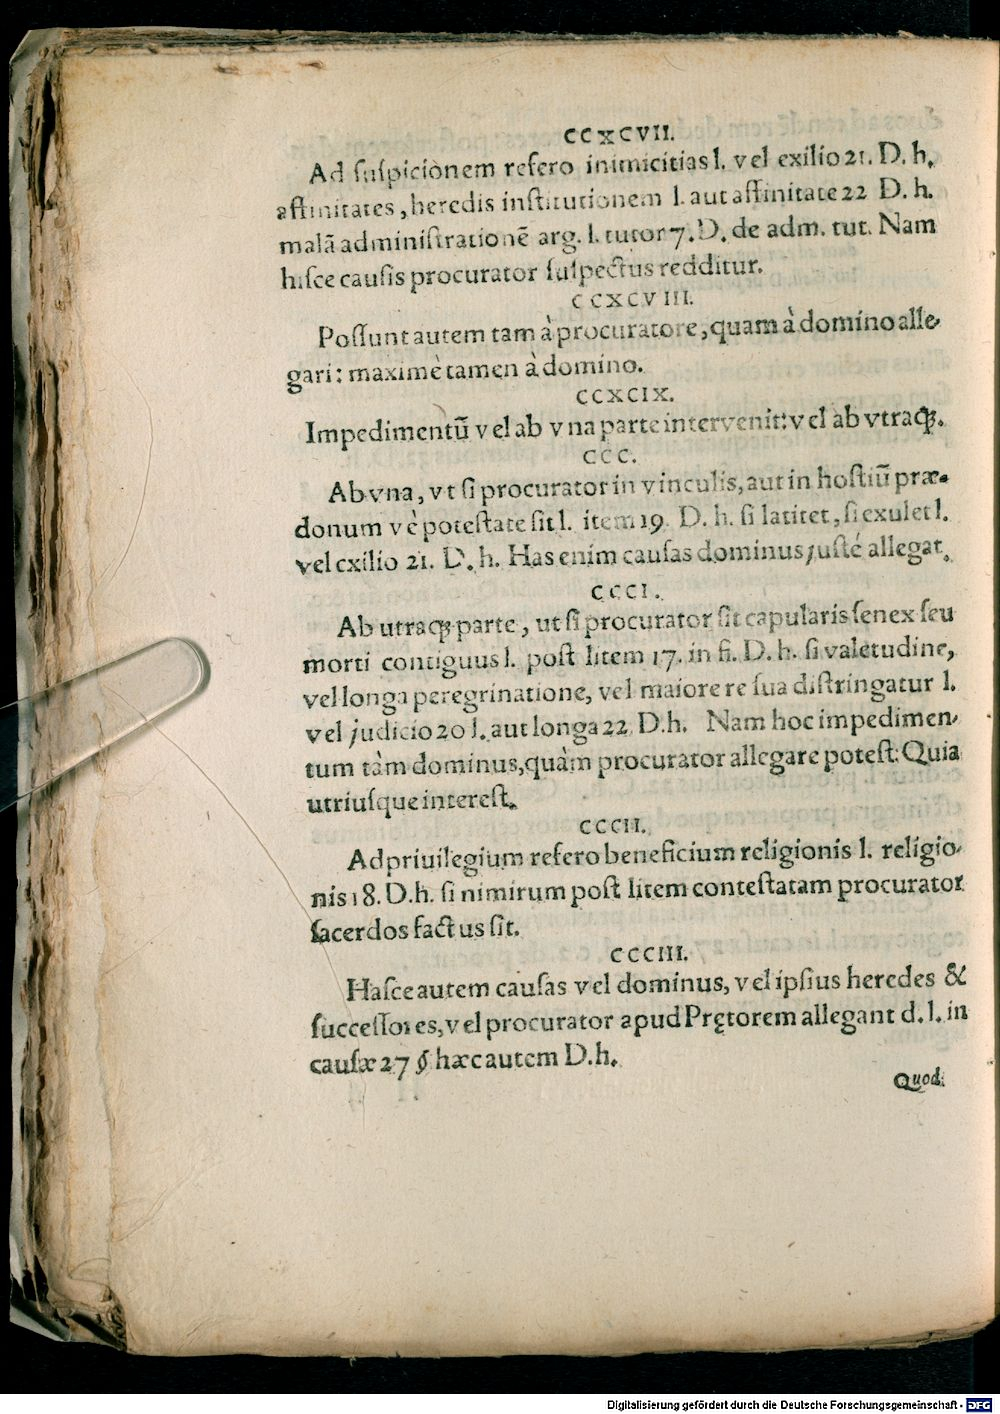 CCXCVII.
Ad ſuſpicionem refero inimicitias l. vel exilio 21. D. h.
affinitates, heredis inſtitutionem l. aut affinitate 22 D. h.
malã adminiſtrationẽ arg. l. tutor 7. D. de adm. tut. Nam
hiſce cauſis procurator ſuſpectus redditur.
CCXCVIII.
Poſſunt autem tam à procuratore, quam à domino alle-
gari: maximè tamen à domino.
CCXCIX.
Impedimentũ vel ab vna parte intervenit: vel ab vtraq́;.
CCC.
Ab vna, vt ſi procurator in vinculis, aut in hoſtiũ præ-
donum vè poteſtate ſit l. item 19. D. h. ſi latitet, ſi exulet l.
vel exilio 21. D. h. Has enim cauſas dominus juſté allegat.
CCCI.
Ab utraq; parte, ut ſi procurator ſit capularis ſenex ſeu
morti contiguus l. poſt litem 17. in fi. D. h. ſi valetudine,
vel longa peregrinatione, vel maiore re ſua diſtringatur l.
vel judicio 20 l. aut longa 22 D.h. Nam hoc impedimen-
tum tàm dominus, quàm procurator allegare poteſt: Quia
utriuſque intereſt.
CCCII.
Ad priuilegium refero beneficium religionis l. religio-
nis 18. D.h. ſi nimirum poſt litem conteſtatam procurator
ſacerdos factus ſit.
CCCIII.
Haſce autem cauſas vel dominus, vel ipſius heredes &
ſucceſſores, vel procurator apud Prętorem allegant d. l. in
cauſæ 27 § hæc autem D.h.
Quod.
Digitalisierung gefördert durch die Deutsche Forschungsgemeinschaft - DFG